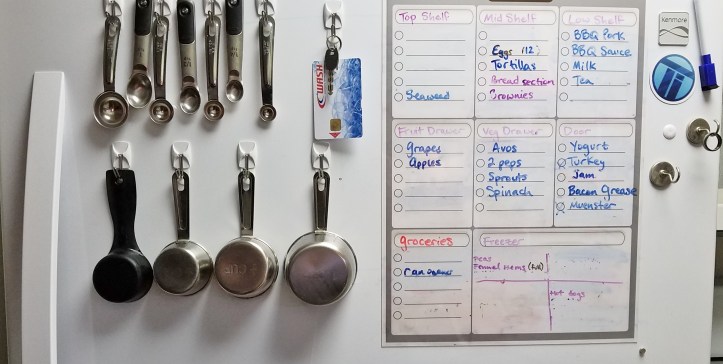 Top Shelf
Seaweed
Mid Shelf
Eggs (12)
Tortillas
Bread section
Brownies
Low Shelf
BBQ Pork
BBQ Sauce
Milk
Tea
Fruit Drawer
Grapes
Apples
Veg Drawer
Avos
2 peps
Sprouts
Spinach
Door
Yogurt
Turkey
Jam
Bacon Grease
Muenster
groceries
Can opener
Freezer
Peas
Funnel items (full)
Hot dogs
WASH
Kenmore
CUP